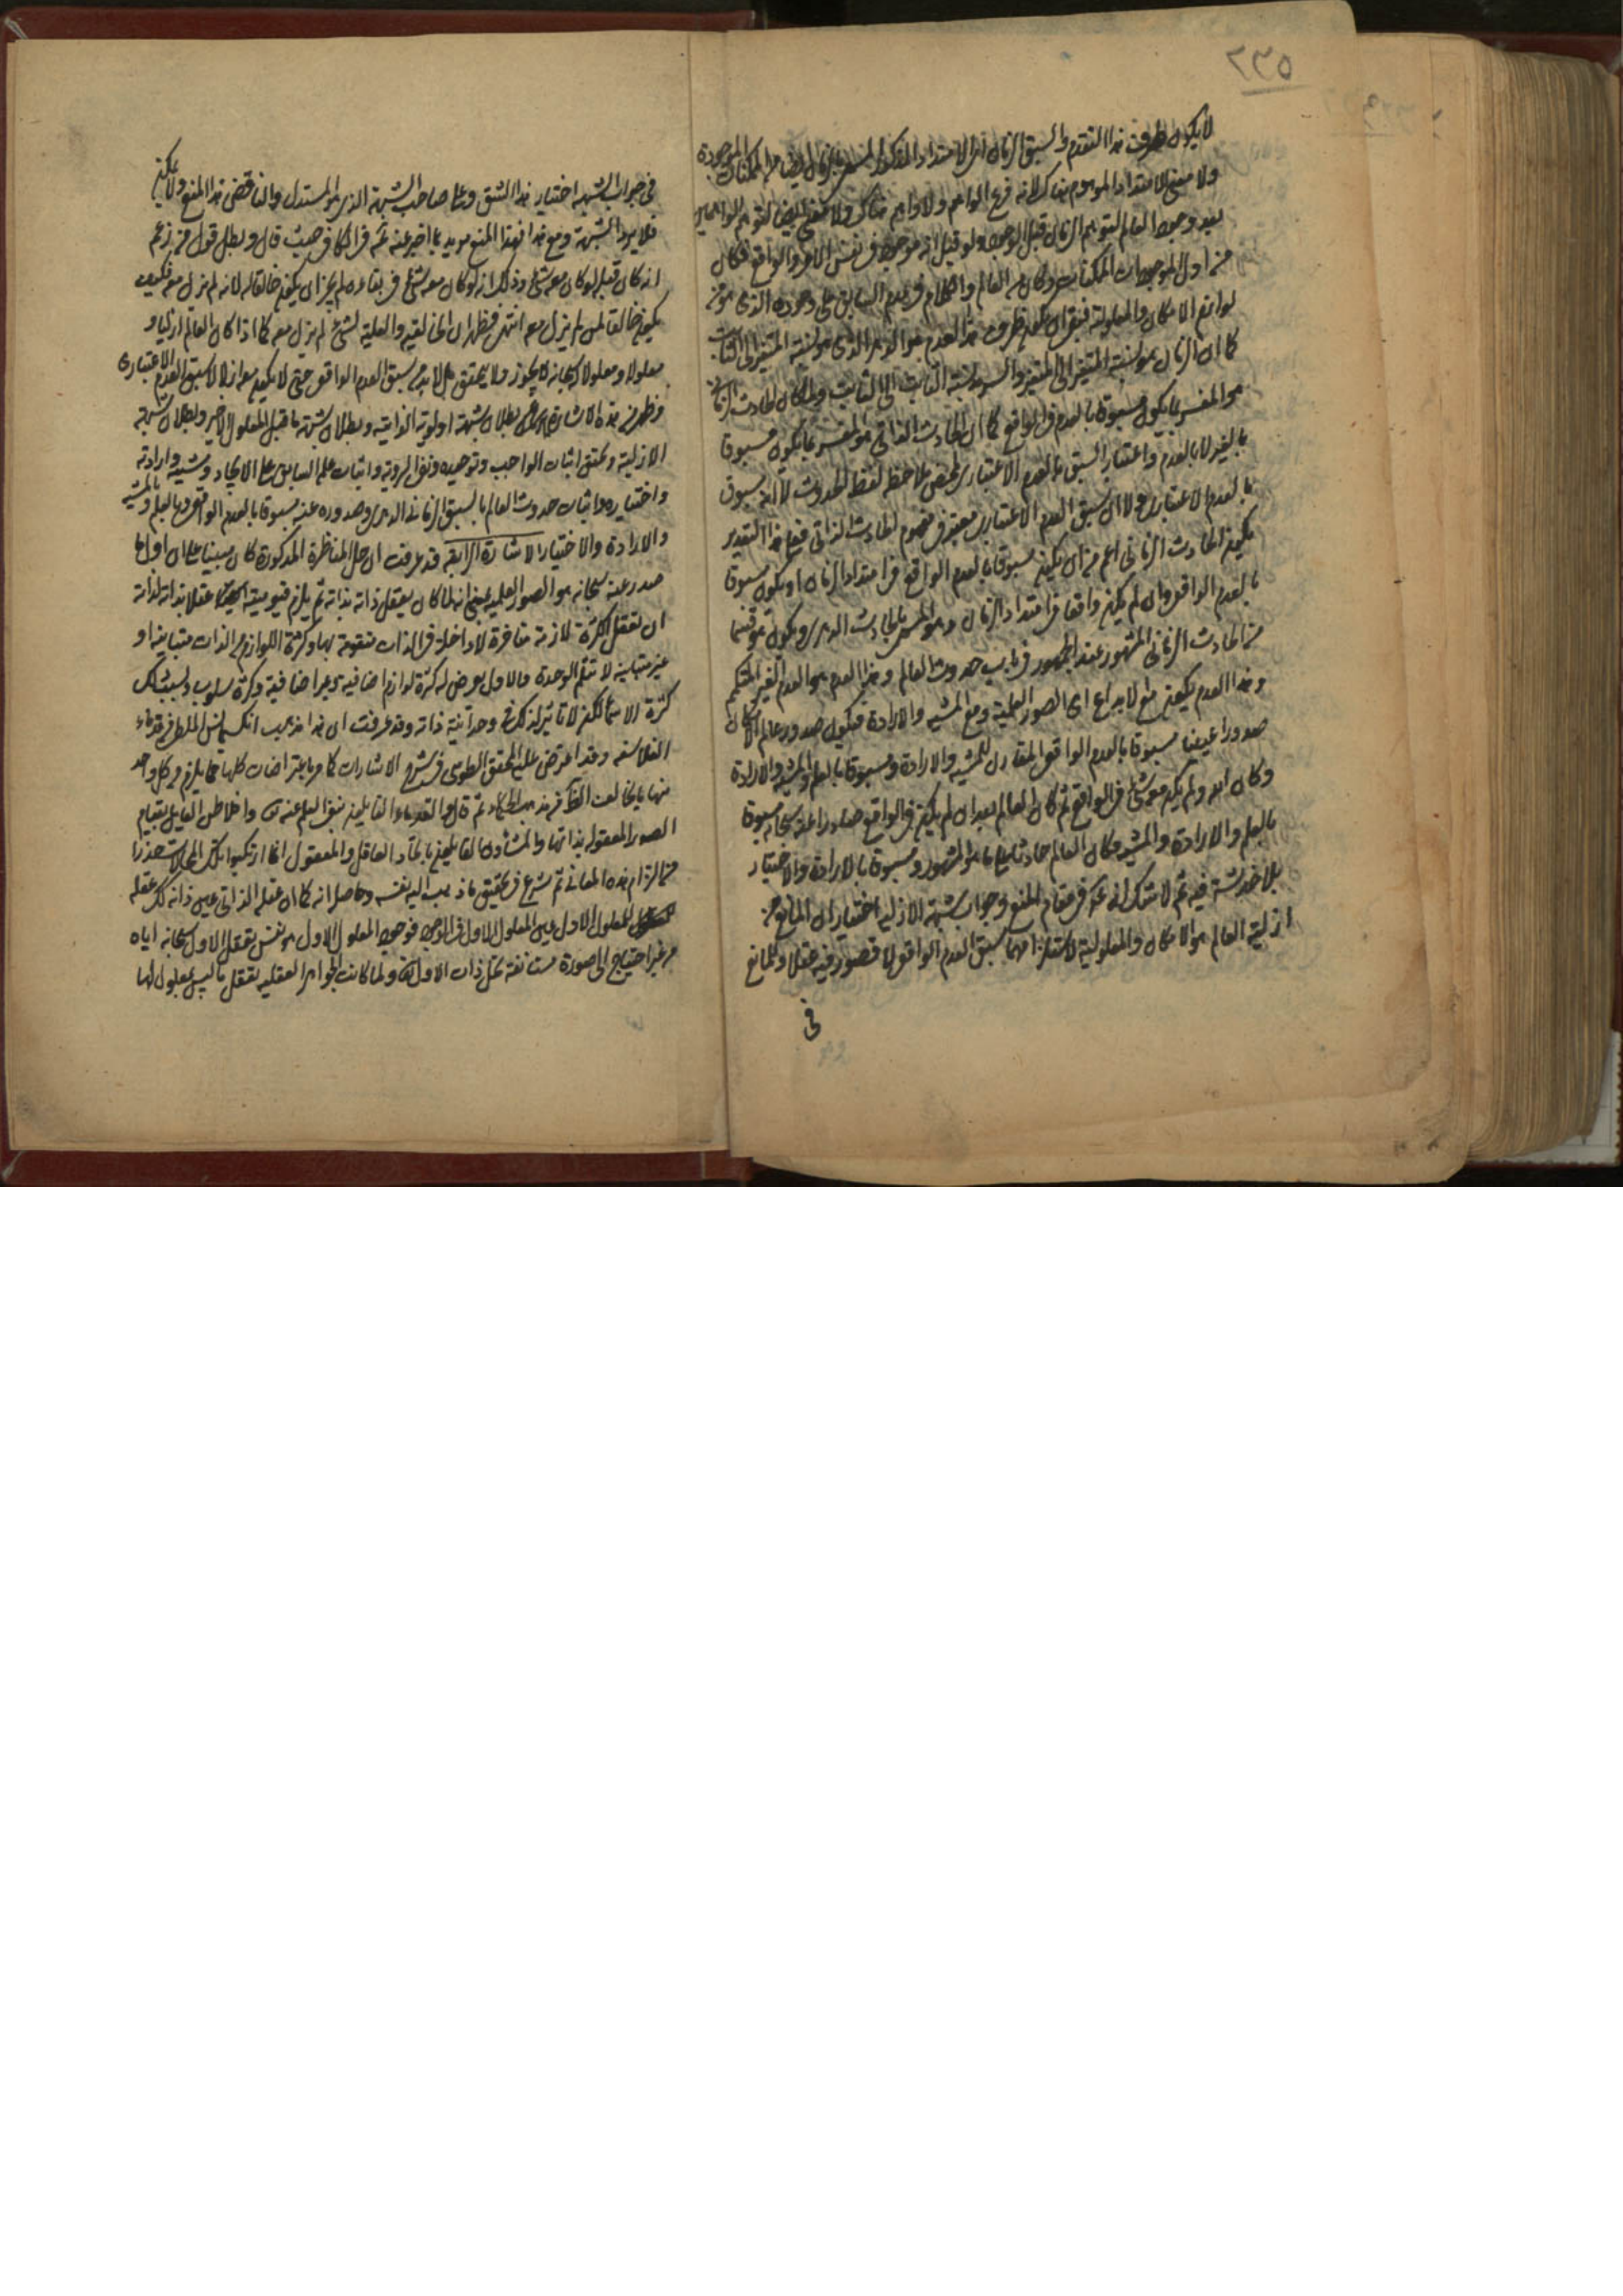 ٥٣٢
لا يكون ظرف هذا التقدم والسبق الزمان اذ الامتداد المذكور المسمى بالزمان ايضا من الممكنات الموجودة
ولا معنى للامتداد الموهوم هناك لانه فرع الواهم ولا واهم هناك ولا معنى ايضا لتوهم الواهمين
بعد وجود العالم لتوهم الزمان قبل الوجود ولو قيل انه موجود في نفس الامر والواقع فكان
من اول الموجودات الممكنات وكان من العالم والكلام في عدم السابق على وجوده الذي هو من
لوازم الامكان والمعلولية فبقى ان يكون ظرف هذا العدم هو الدهر الذي هو نسبة المتغير الى الثابت
كما ان الزمان هو نسبة المتغير الى المتغير والسرمد نسبة الثابت الى الثابت ولما كان الحادث الزماني
هو المفسر بما يكون مسبوقا بالعدم في الواقع كما ان الحادث الذاتي هو المفسر بما يكون مسبوقا
بالغير لا بالعدم واعتبار السبق بالعدم الاعتباري لمحض ملاحظة لفظ الحدوث لا انه مسبوق
بالعدم الاعتباري ولا ان سبق العدم الاعتباري معتبر في مفهوم الحادث الذاتي فعلى هذا التقدير
يكون الحادث الزماني اعم من ان يكون مسبوقا بالعدم الواقع في امتداد الزمان او يكون مسبوقا
بالعدم الواقع وان لم يكن واقعا في امتداد الزمان وهو المسمى بالحادث الدهري ويكون هو قسما
من الحادث الزماني المشهور عند الجمهور في باب حدوث العالم وهذا العدم هو العدم الغير المتكمم
وهذا العدم يكون مع الابداع اى الصور العلمية ومع المشية والارادة فيكون صدور عالم الامكان
صدورا عينيا مسبوقا بالعدم الواقع المقارن للمشية والارادة ومسبوقا بالعلم والمشية والارادة
وكان الله ولم يكن معه شئ في الواقع ثم كان العالم بعد ان لم يكن في الواقع صادرا عنه سبحانه مسبوقا
بالعلم والارادة والمشية فكان العالم حادثا على ما هو المشهور ومسبوقا بالارادة والاختيار
بلا خدشة فيه ثم لا شك انه في مقام المنع وجواب شبهة الازلية اختيار ان المانع من
ازلية العالم هو الامكان والمعلولية لاستلزامهما سبق العدم الواقع لا قصور فيه عقلا وللمانع
في
في جواب الشبهة اختيار هذا الشق وعلى صاحب الشبهة الذي هو المستدل والناقض هذا المنع ولا يمكنه
فلا يرد الشبهة ومع هذا فهذا المنع مويد بما اخبر عنه ثم في الكافي حيث قال وبطل قول من زعم
انه كان قبله او كان معه شئ وذلك انه لو كان معه شئ في بقاءه لم يجز ان يكون خالقا له لانه لم يزل معه فكيف
يكون خالقا لمن لم يزل معه انتهى فظهر ان الخالقية والعلية لشئ لم يزل معه كما اذا كان العالم ازليا و
معلولا ومعلولا له سبحانه لا يجوز ولا يتحقق بل لا بد من سبق العدم الواقع حتى لا يكون معه ازلا لا سبق العدم الاعتباري
وظهر من هذه الاشارة بطلان شبهة اولوية الذاتية وبطلان شبهة ما قبل المعلول الاخير وبطلان شبهة
الازلية وتحقق اثبات الواجب وتوحيده ونفى الروية واثبات علمه السابق على الايجاد ومشيته وارادته
واختياره واثبات حدوث العالم بالسبق الزماني الدهري وصدوره عنه مسبوقا بالعدم الواقع وبالعلم وبالمشية
والارادة والاختيار الاشارة الرابعة قد عرفت ان حل المناظرة المذكورة كان مبنيا على ان اول ما
صدر عنه سبحانه هو الصور العلمية بمعنى انه لما كان يعقل ذاته بذاته ثم يلزم قيوميته عقلا بذاته لذاته
ان تعقل الكثرة لازمة متاخرة لا داخلة في الذات متقومة بها وكثرة اللوازم من الذات متباينة او
غير متباينة لا تثلم الوحدة والاول يعرض له كثرة لوازم اضافية وغير اضافية وكثرة سلوب وبسبب ذلك
كثرة الاسماء لكن لا تاثير لذلك في وحدانية ذاته وقد عرفت ان هذا مذهب انكسمانس الملطي من قدماء
الفلاسفة وقد اعترض عليه المحقق الطوسي في شرح الاشارات كما مر باعتراضات كلها مما يلزم وكل واحد
منها يخالف الظاهر من مذهب الحكماء ثم قال والقدماء القائلين بنفى العلم عنه تعالى وافلاطن القايل بقيام
الصور المعقولة بذاتها والمشاؤن القائلون باتحاد العاقل والمعقول انما ارتكبوا تلك المحالات حذرا
من التزام هذه المعاني ثم شرع في تحقيق ما ذهب اليه نفسه وحاصله انه كما ان عقله الذاتي عين ذاته كك عقله
للمعلول الاول عين المعلول الاول في الوجود فوجود المعلول الاول هو نفس تعقل الاول سبحانه اياه
من غير احتياج الى صورة مستانفة تحل ذات الاول تعالى ولما كانت الجواهر العقلية تعقل ما ليس بمعلول لها